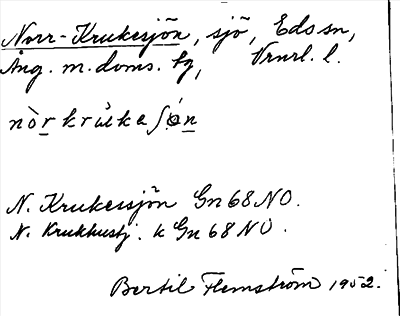 Norr-Krukesjön, sjö, Eds sn,
Ång. m. doms. tg, Vrnrl. l.
nòr krùka ʃön
N. Krukessjön Gn 68 NO.
N. Krukhustj. k Gn 68 NO.
Bertil Flemström 1952.